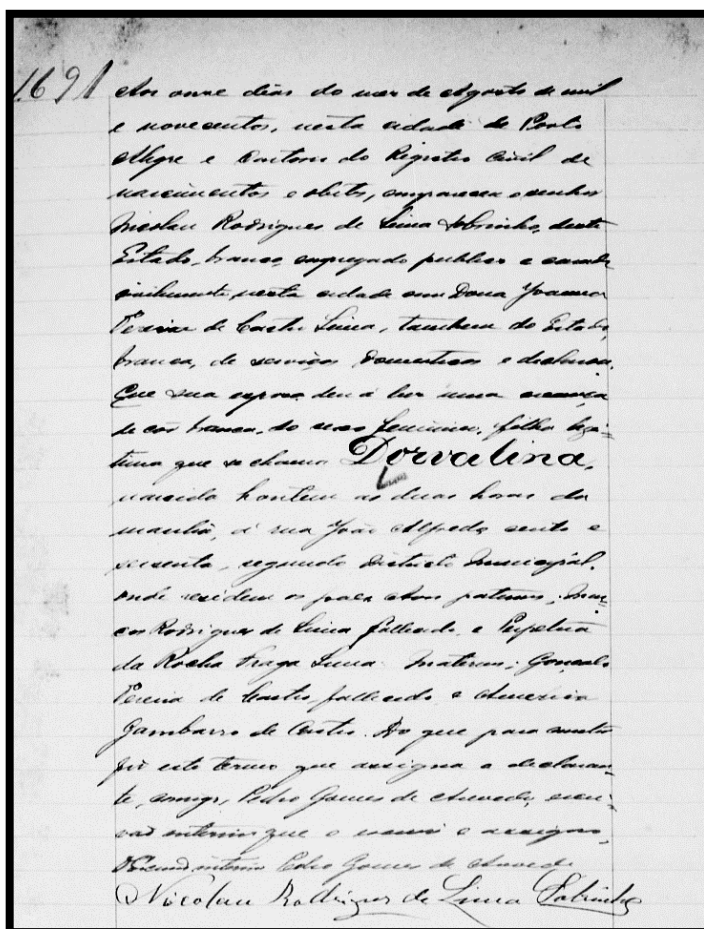 1691
Aos onze dias do mez de Agosto de mil
e novecentos, nesta cidade de Porto
Alegre e Cartorio do Registro Civil de
nascimentos e obitos, compareceu o senhor
Nicolau Rodrigues de Lima Sobrinho, deste
Estado, branco, empregado publico e casado
civilmente nesta cidade com Dona
Pereira de Castro Lima, tambem do Estado,
branca, de serviços domesticos e declarou:
Que sua esposa deu á luz uma creança
de côr branca, do sexo feminino, filha legi-
tima que se chama Dorvalina,
nascida hontem as duas horas da
manhã, á rua João Alfredo cento e
sessenta, segundo districto municipal.
onde residem os paes. Avos paternos; Mar-
cos Rodrigues de Lima fallecido, e Perpetua
da Rocha Fraga Lima. Maternos; Gonçalo
Pereira de Castro, fallecido e
Gambarro de Castro. Do que para constar
fiz este termo que assigna o declaran-
te, comigo, Pedro Gomes de Azevedo, escri-
vão interino que o escrevi e assigno.
Escrivão interino Pedro Gomes de Azevedo
Nicolau Rodrigues de Lima Sobrinho